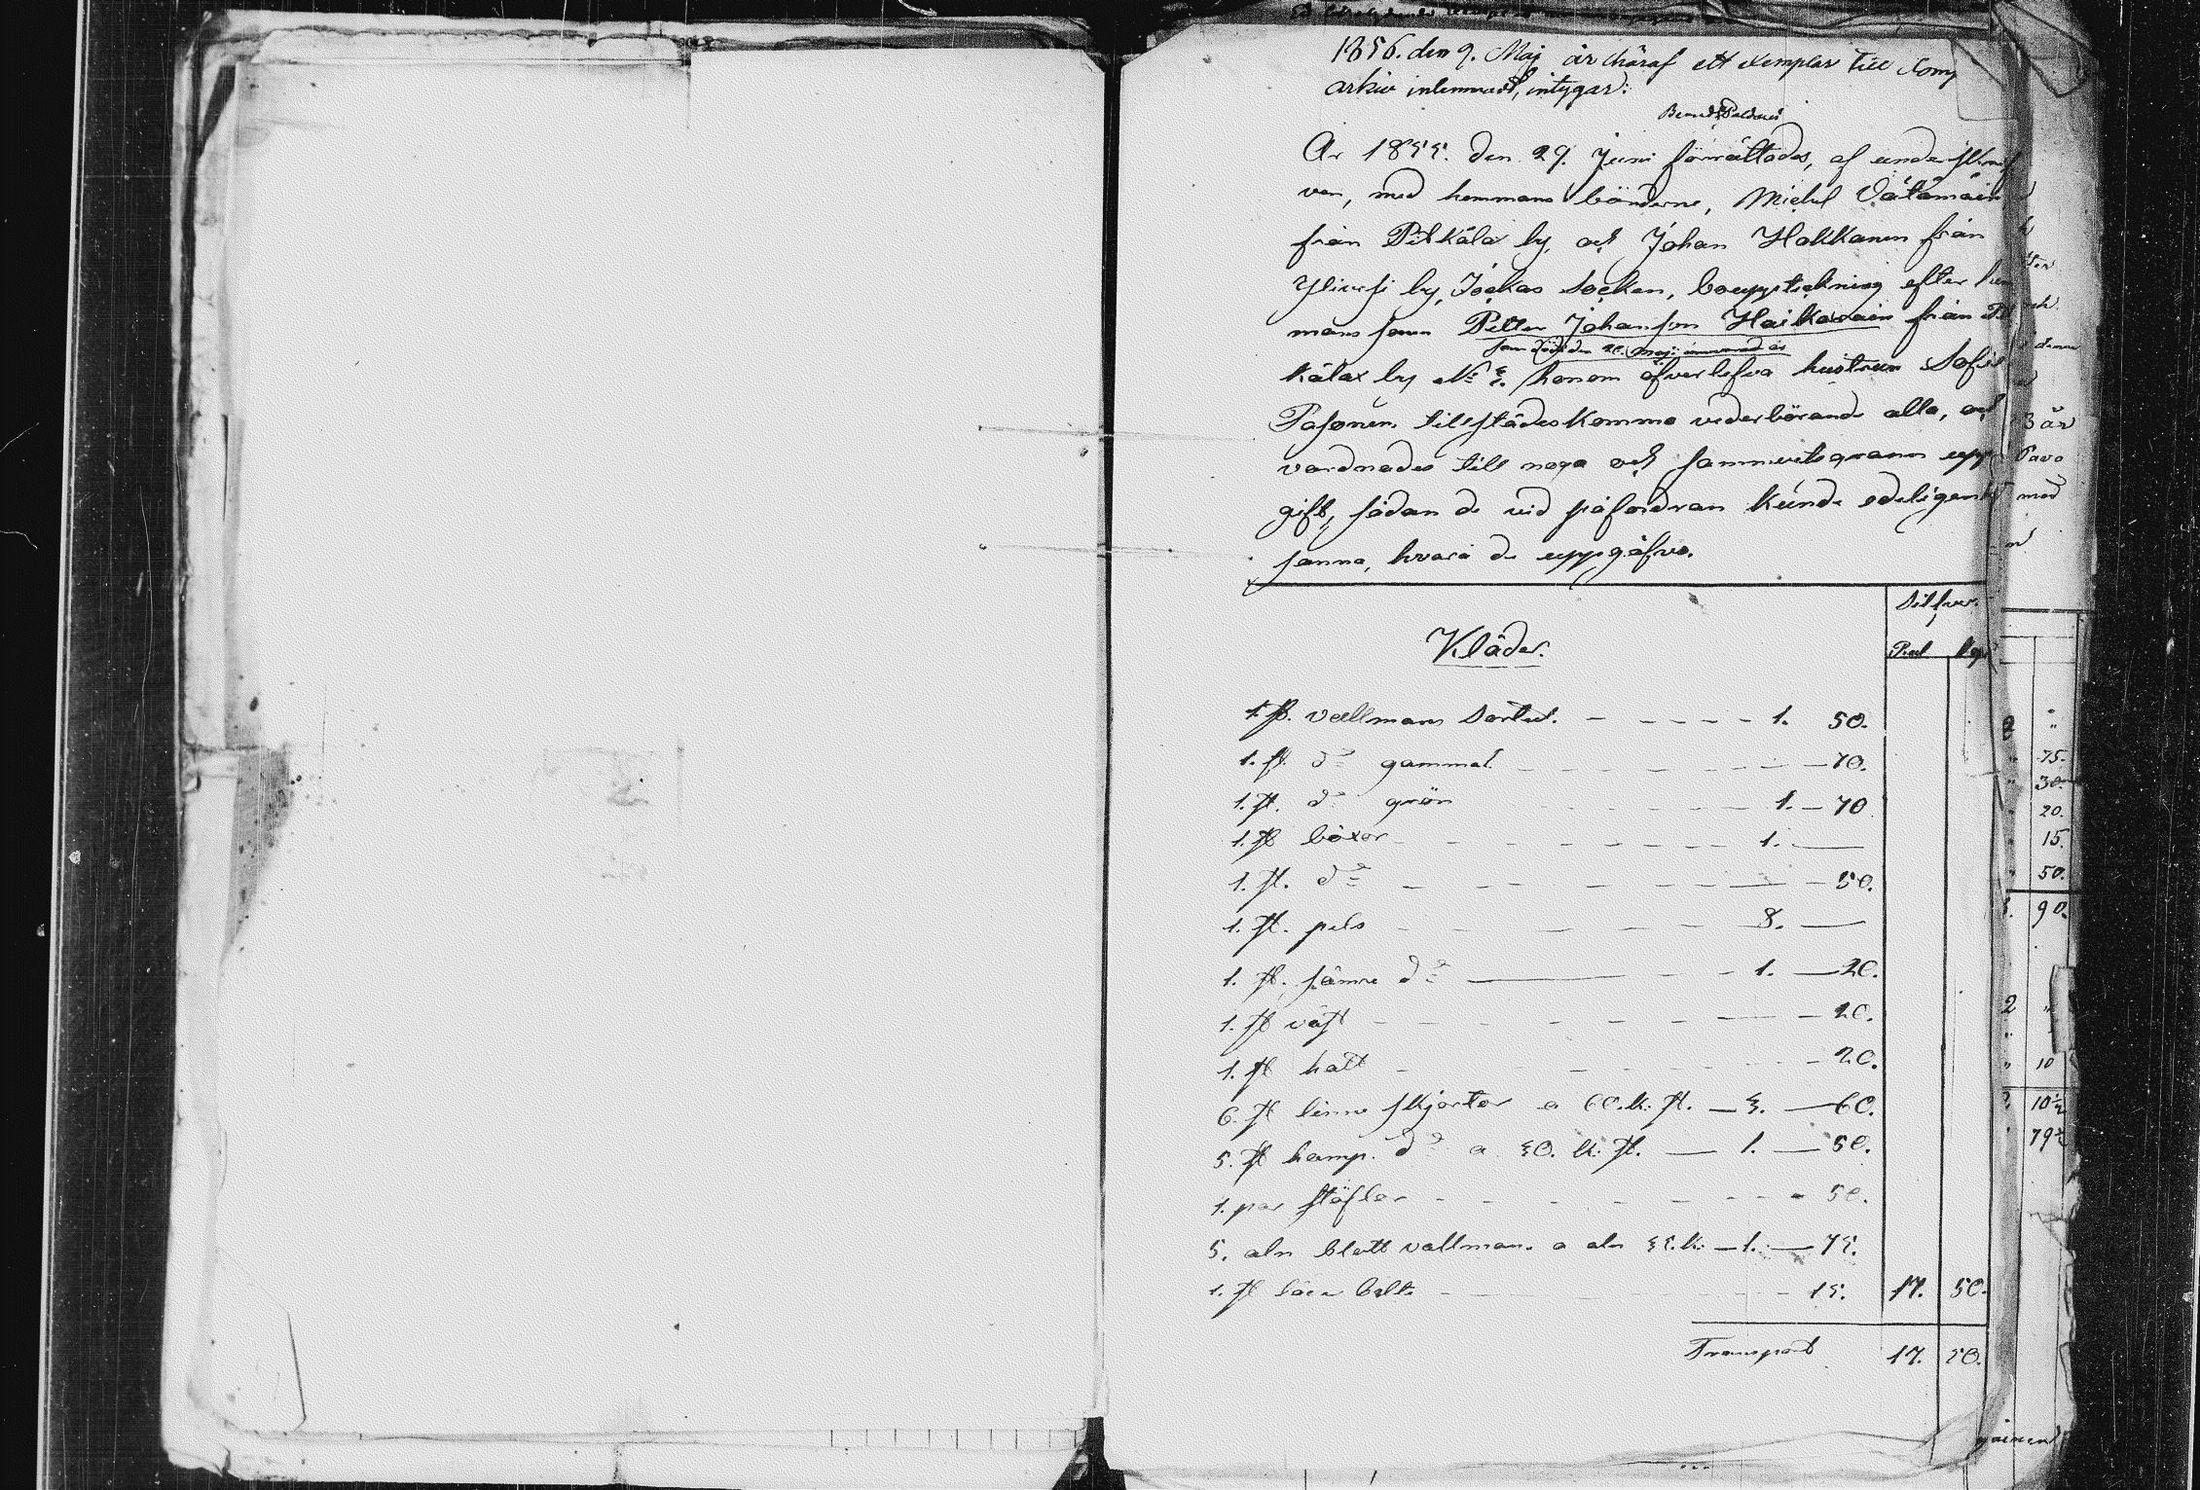 1856. den 9. Maj är häraf ett exemplar till Domj
arkiv inlemnadt, intygar:
År 1855. den 29. Juni förrättades, af underskref
ven, med hemmans bönderne, Michel Väätämäin
från Pitkälax by, och Johan Hakkanen från
by, Jockas Socken, bouppteckning efter hem
mans sonen Petter Johansson Haikarain från Pit
som dödde den 20. Maj innevarande år
kälax by No 5. honom öfverlefva hustrun Sofia
Pasonen. tillstädeskomma vederbörande alla, och
vardnades till noga och sammvetsgrann upp
gift, sådan de vid påfordran kunde edeligen
sanna, hvara de uppgåfvo.
Silfver.
Rubl kop
Kläder.
1. st. vallmans Sortut. 1. 50.
1. st. do gammal 70.
1. st. do grön 1. 70
1. st böxor 1.
1. st. do 50.
1. st. pels 8.
1. st. sämre do 1. 20.
1. st väst 20.
1. st hatt 20.
6. st linne skjortor a 60. k: st. 3. 60.
5. st hamp. do a 30. k: st. 1. 50.
1. par stöflar 50.
5. aln blått vallman a aln 35. k: 1. 75.
1. st bälte 15. 17. 50.
Transport 17. 50.
3 år
Pavo
med
75.
30.
20.
15.
50.
90.
2
10
10½
79½